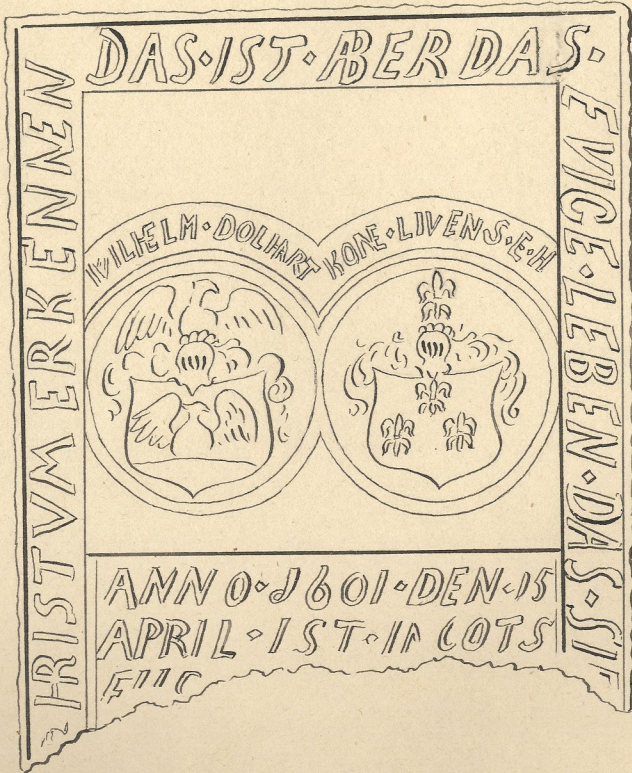 DAS·IST·ABER DAS·
EVIGE·LEBEN·DAS·SI
HRISTVM ERKENNEN
WILHELM·DOLHART
KONE·LIVENS·E·H
ANNO·1601·DEN·15
APRIL·IST·IN GOTS